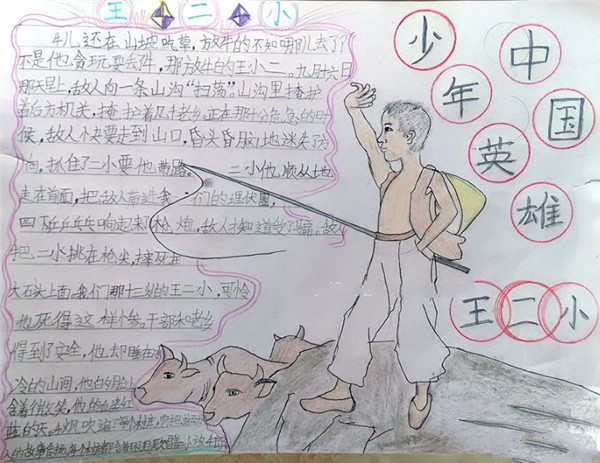 王二小
牛儿还在山坡吃草,放牛的不知哪儿去了
不是他贪玩耍丢牛,那放牛的王小二。九月十六日
那天早上,敌人向一条山沟"扫荡",山沟里掩护
着后方机关,掩护着几千老乡。正在那十分危急的时
候,敌人快要走到山口,昏头昏脑地迷失了方
向,抓住了二小要他带路。二小他顺从地
走在前面,把敌人带进我们的埋伏圈,
四下乒乒乓乓响起来了枪炮,敌人才知道受了骗。敌人
把二小挑在枪尖,摔死在
大石头上面,我们那十三岁的王二小,可怜
他死得这样惨。干部和老乡
得到了安全,他却睡在
冷的山间,他的脸上
含着微笑,他的血染红
蓝的天,秋风吹遍了
少年英雄
中国
王二小